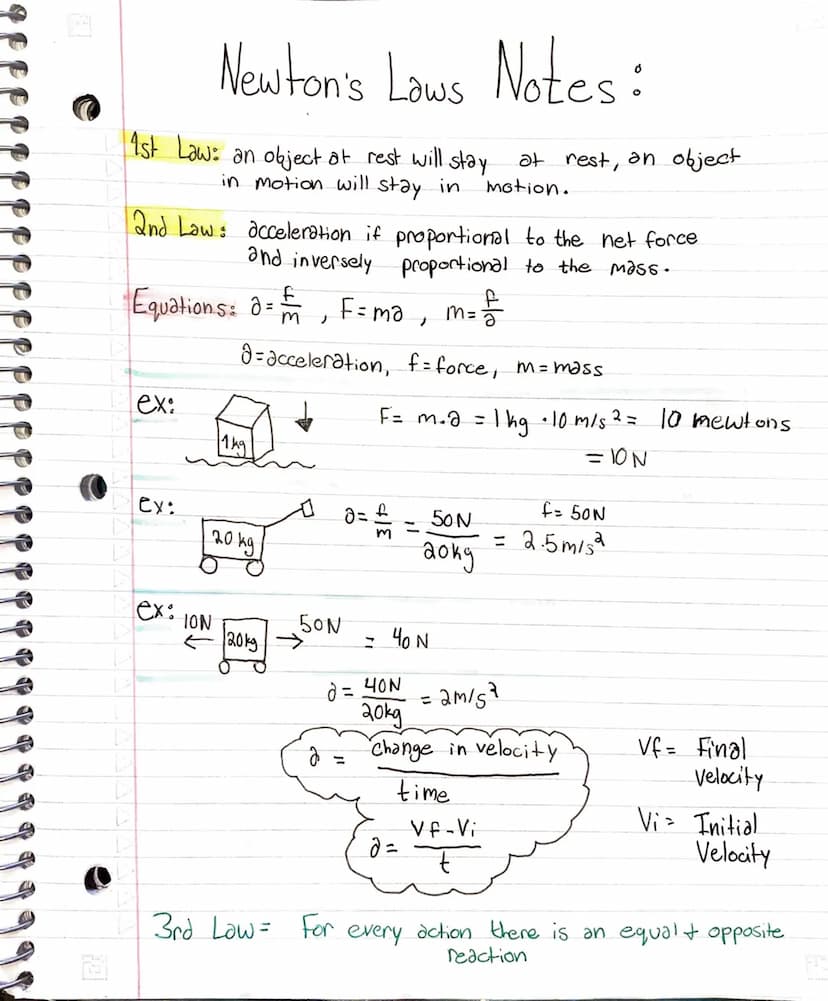 Newton's Laws Notes:
1st Law: an object at rest will stay at rest, an object
in motion will stay in motion.
2nd Law: acceleration if proportional to the net force
and inversely proportional to the mass.
Equations: a = f/m , F = ma , m = f/a
a = acceleration, f = force, m = mass
ex: 1kg F = m.a = 1kg · 10 m/s² = 10 newtons
= 10N
ex: 20 kg a = f/m = 50N/20kg = 2.5m/s²
f = 50N
ex: 10N 20kg 50N = 40N
a = 40N/20kg = 2m/s²
a = change in velocity/time
a = Vf - Vi/t
Vf = Final
velocity
Vi = Initial
Velocity
3rd Law = For every action there is an equal + opposite
reaction